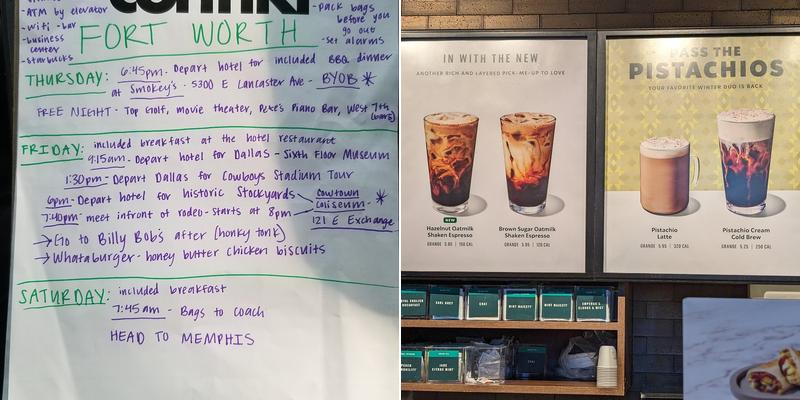 -ATM by elevator
-wifi-bar
-business
center
-starbucks
contiki
-pack bags
before you
go out
-set alarms
FORT WORTH
THURSDAY: 6:45pm - Depart hotel for included BBQ dinner
at Smokey's - 5300 E Lancaster Ave - BYOB *
FREE NIGHT - Top Golf, movie theater, Pete's Piano Bar, West 7th
(bars)
FRIDAY: included breakfast at the hotel restaurant
9:15am - Depart hotel for Dallas - Sixth Floor Museum
1:30pm - Depart Dallas for Cowboys Stadium Tour
6pm - Depart hotel for historic Stockyards
7:40pm - meet infront of rodeo - starts at 8pm
Cowtown
Coliseum *
121 E Exchange
→ Go to Billy Bob's after (honky tonk)
→ Whataburger - honey butter chicken biscuits
SATURDAY: included breakfast
7:45am - Bags to coach
HEAD TO MEMPHIS
IN WITH THE NEW
ANOTHER RICH AND LAYERED PICK-ME-UP TO LOVE
NEW
Hazelnut Oatmilk
Shaken Espresso
GRANDE 5.95 | 150 CAL
Brown Sugar Oatmilk
Shaken Espresso
GRANDE 5.95 | 120 CAL
PASS THE
PISTACHIOS
YOUR FAVORITE WINTER DUO IS BACK
Pistachio
Latte
GRANDE 5.95 | 320 CAL
Pistachio Cream
Cold Brew
GRANDE 5.25 | 250 CAL
EARL GREY
CHAI
MINT MAJESTY
MINT MAJESTY
EMPEROR'S
CLOUDS & MIST
JADE
CITRUS MINT